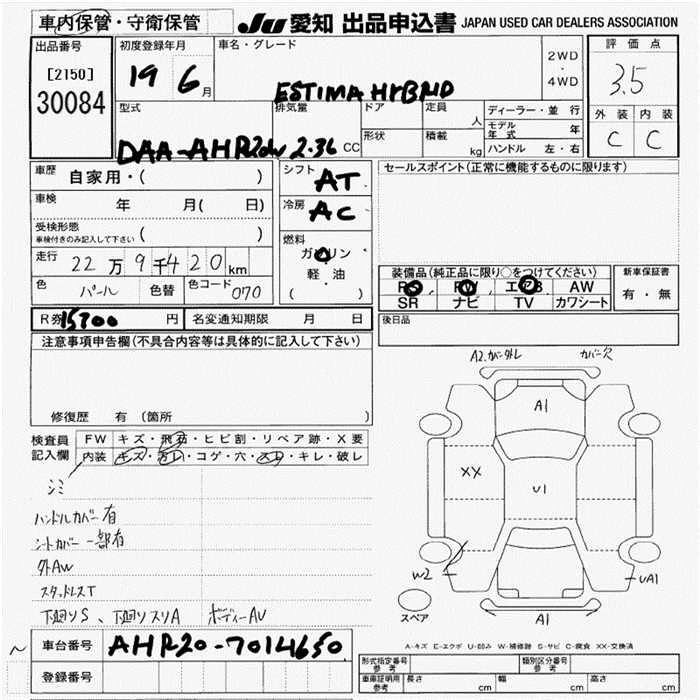 車内保管・守衛保管 JU 愛知 出品申込書 JAPAN USED CAR DEALERS ASSOCIATION
出品番号 初度登録年月 車名・グレード 2WD・4WD 評価点
[2150]
30084
19 6月 ESTIMA HYBRID 3.5
型式 排気量 ドア 定員 人 ディーラー・並行 外装 内装
モデル年式 年 C C
形状 積載 kg ハンドル 左・右
DAA-AHR20W 2.36 CC
車歴 自家用・( ) シフト AT セールスポイント(正常に機能するものに限ります)
車検 年 月( 日) 冷房 AC
受検形態 ( )
車検付きのみ記入して下さい
燃料 ガソリン
軽・油
( )
走行 22万9千420km 装備品(純正品に限り○をつけてください) 新車保証書
PS PW エアB AW 有・無
色 パール 色替 色コード 070 SR ナビ TV カワシート
R券 15700円 名変通知期限 月 日 後日品
注意事項申告欄(不具合内容等は具体的に記入して下さい)
A2.カバー外レ カバー欠
A1
修復歴 有(箇所
検査員記入欄 FW キズ・飛石・ヒビ割・リペア跡・X要
内装 キズ・汚レ・コゲ・穴・スレ・キレ・破レ
XX U1
シミ
ハンドルカバー有
シートカバー一部有
外AW
W2 UA1
スタッドレスT
スペア
下廻りS、下廻りスリA ボディーAU A1
A-キズ E-エクボ U-凹み W-補修跡 S-サビ C-腐食 XX-交換済
~ 車台番号 AHR20-7014650
型式指定番号 参考 類別区分番号 参考
登録番号 車庫証明用 参考 長さ cm 幅 cm 高さ cm